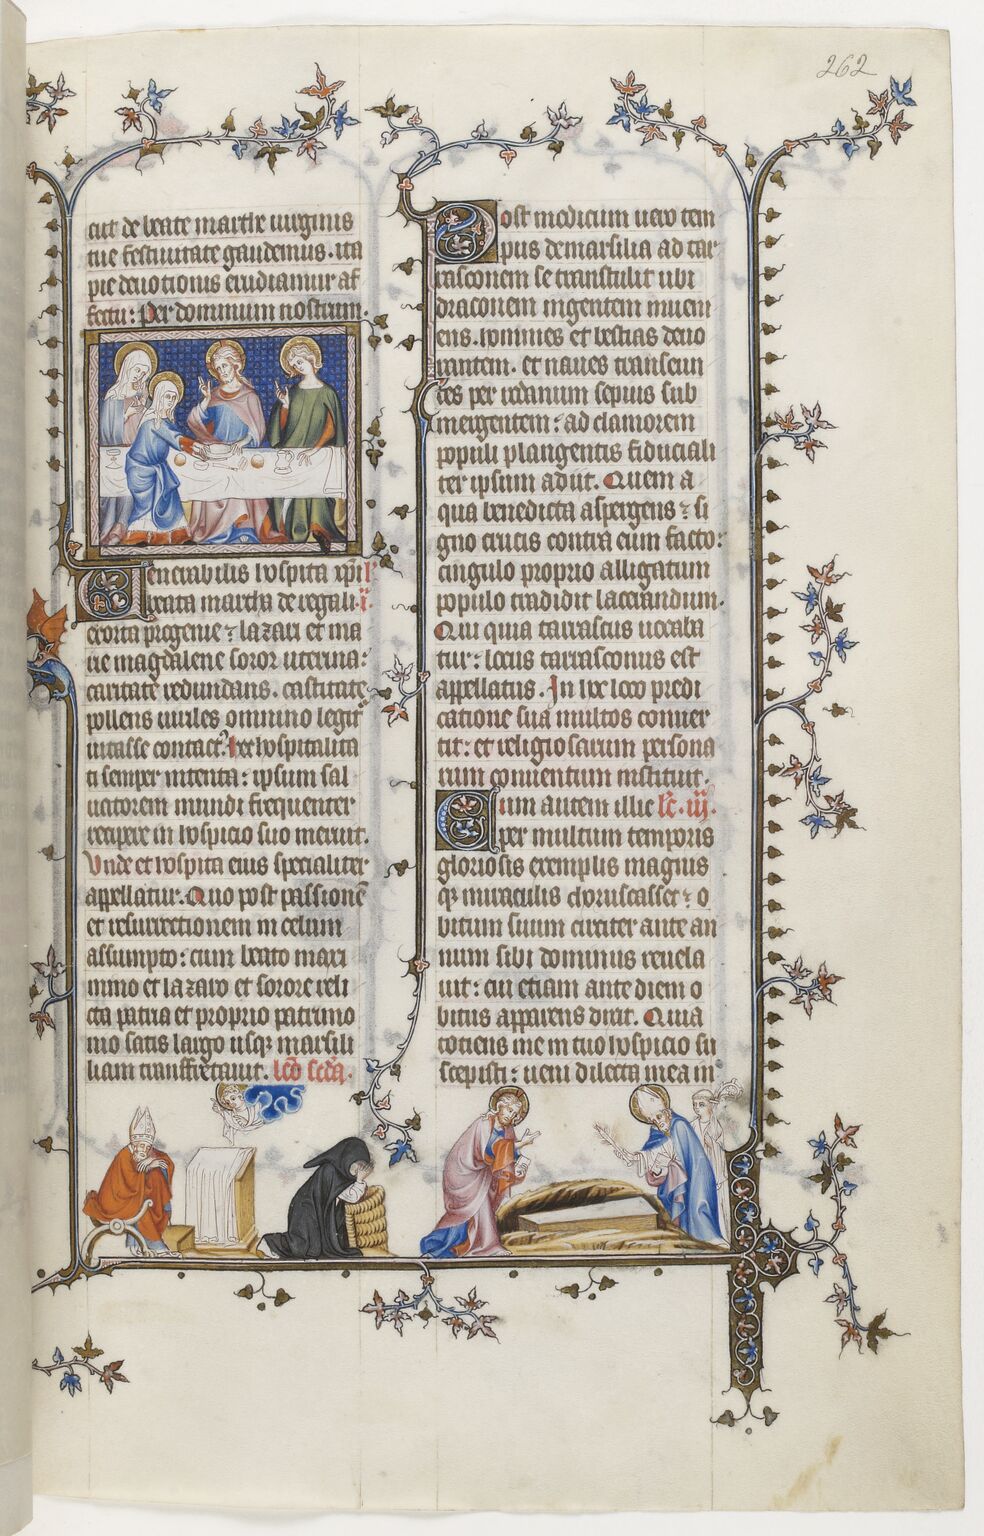 262
cut de beate marthe uirginis
tue festiuitate gaudemus. ita
pie deuotionis erudiamur af
fectu: Per dominum nostrum.
Uenerabilis hospita xpi l̃
beata martha de regali. i.
exorta progenie: lazari et ma
rie magdalene soror uterina:
caritate redundans. castitate
pollens uiriles omnino legit̃
uitasse contact̃? hec hospitalita
ti semper intenta: ipsum sal
uatorem mundi frequenter
recipere in hospicio suo meruit.
Unde et hospita eius specialiter
appellatur. Quo post passionẽ
et resurrectionem in celum
assumpto: cum beato maxi
mino et lazaro et sorore reli
cta patria et proprio patrimo
nio satis largo usq; marsili
liam transfretauit. lcõ scđa.
Post modicum uero tem
pus de marsilia ad tar
rasconem se transtulit ubi
draconem ingentem inueni
ens. homines et bestias deuo
rantem. et naues transeun
tes per rodanum sepius sub
mergentem: ad clamorem
populi plangentis fiduciali
ter ipsum adiit. Quem a
qua benedicta aspergens: si
gno crucis contra eum facto:
cingulo proprio alligatum
populo tradidit lacerandum.
Qui quia tarrascus uocaba
tur: locus tarrasconus est
appellatus. In hoc loco predi
catione sua multos conuer
tit: et religiosarum persona
rum conuentum instituit.
Cum autem illic lc̃. iij.
per multum temporis
gloriosis exemplis magnis
q; miraculis choruscasset: o
bitum suum circiter ante an
num sibi dominus reuela
uit: cui etiam ante diem o
bitus apparens dixit. Quia
totiens me in tuo hospicio su
scepisti: ueni dilecta mea in